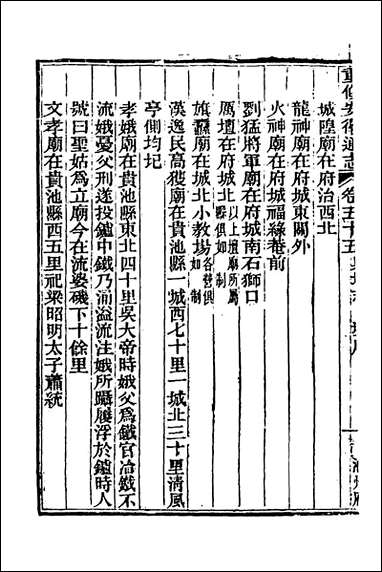 重修安徽通志 卷五十五
城隍廟在府治西北
龍神廟在府城東關外
火神廟在府城福緣菴前
劉猛將軍廟在府城南石獅口
厲壇在府城北以上壇廟所屬縣俱如制
旗纛廟在城北小教場各營俱如制
漢逸民高獲廟在貴池縣一城西七十里一城北三十里清風
亭側均圮
孝娥廟在貴池縣東北四十里吳大帝時娥父爲鐵官冶鐵不
流娥憂父刑遂投鑪中鐵乃湧溢流注娥所躡履浮於鑪時人
號曰聖姑爲立廟今在流婆磯下十餘里
文孝廟在貴池縣西五里祀梁昭明太子蕭統